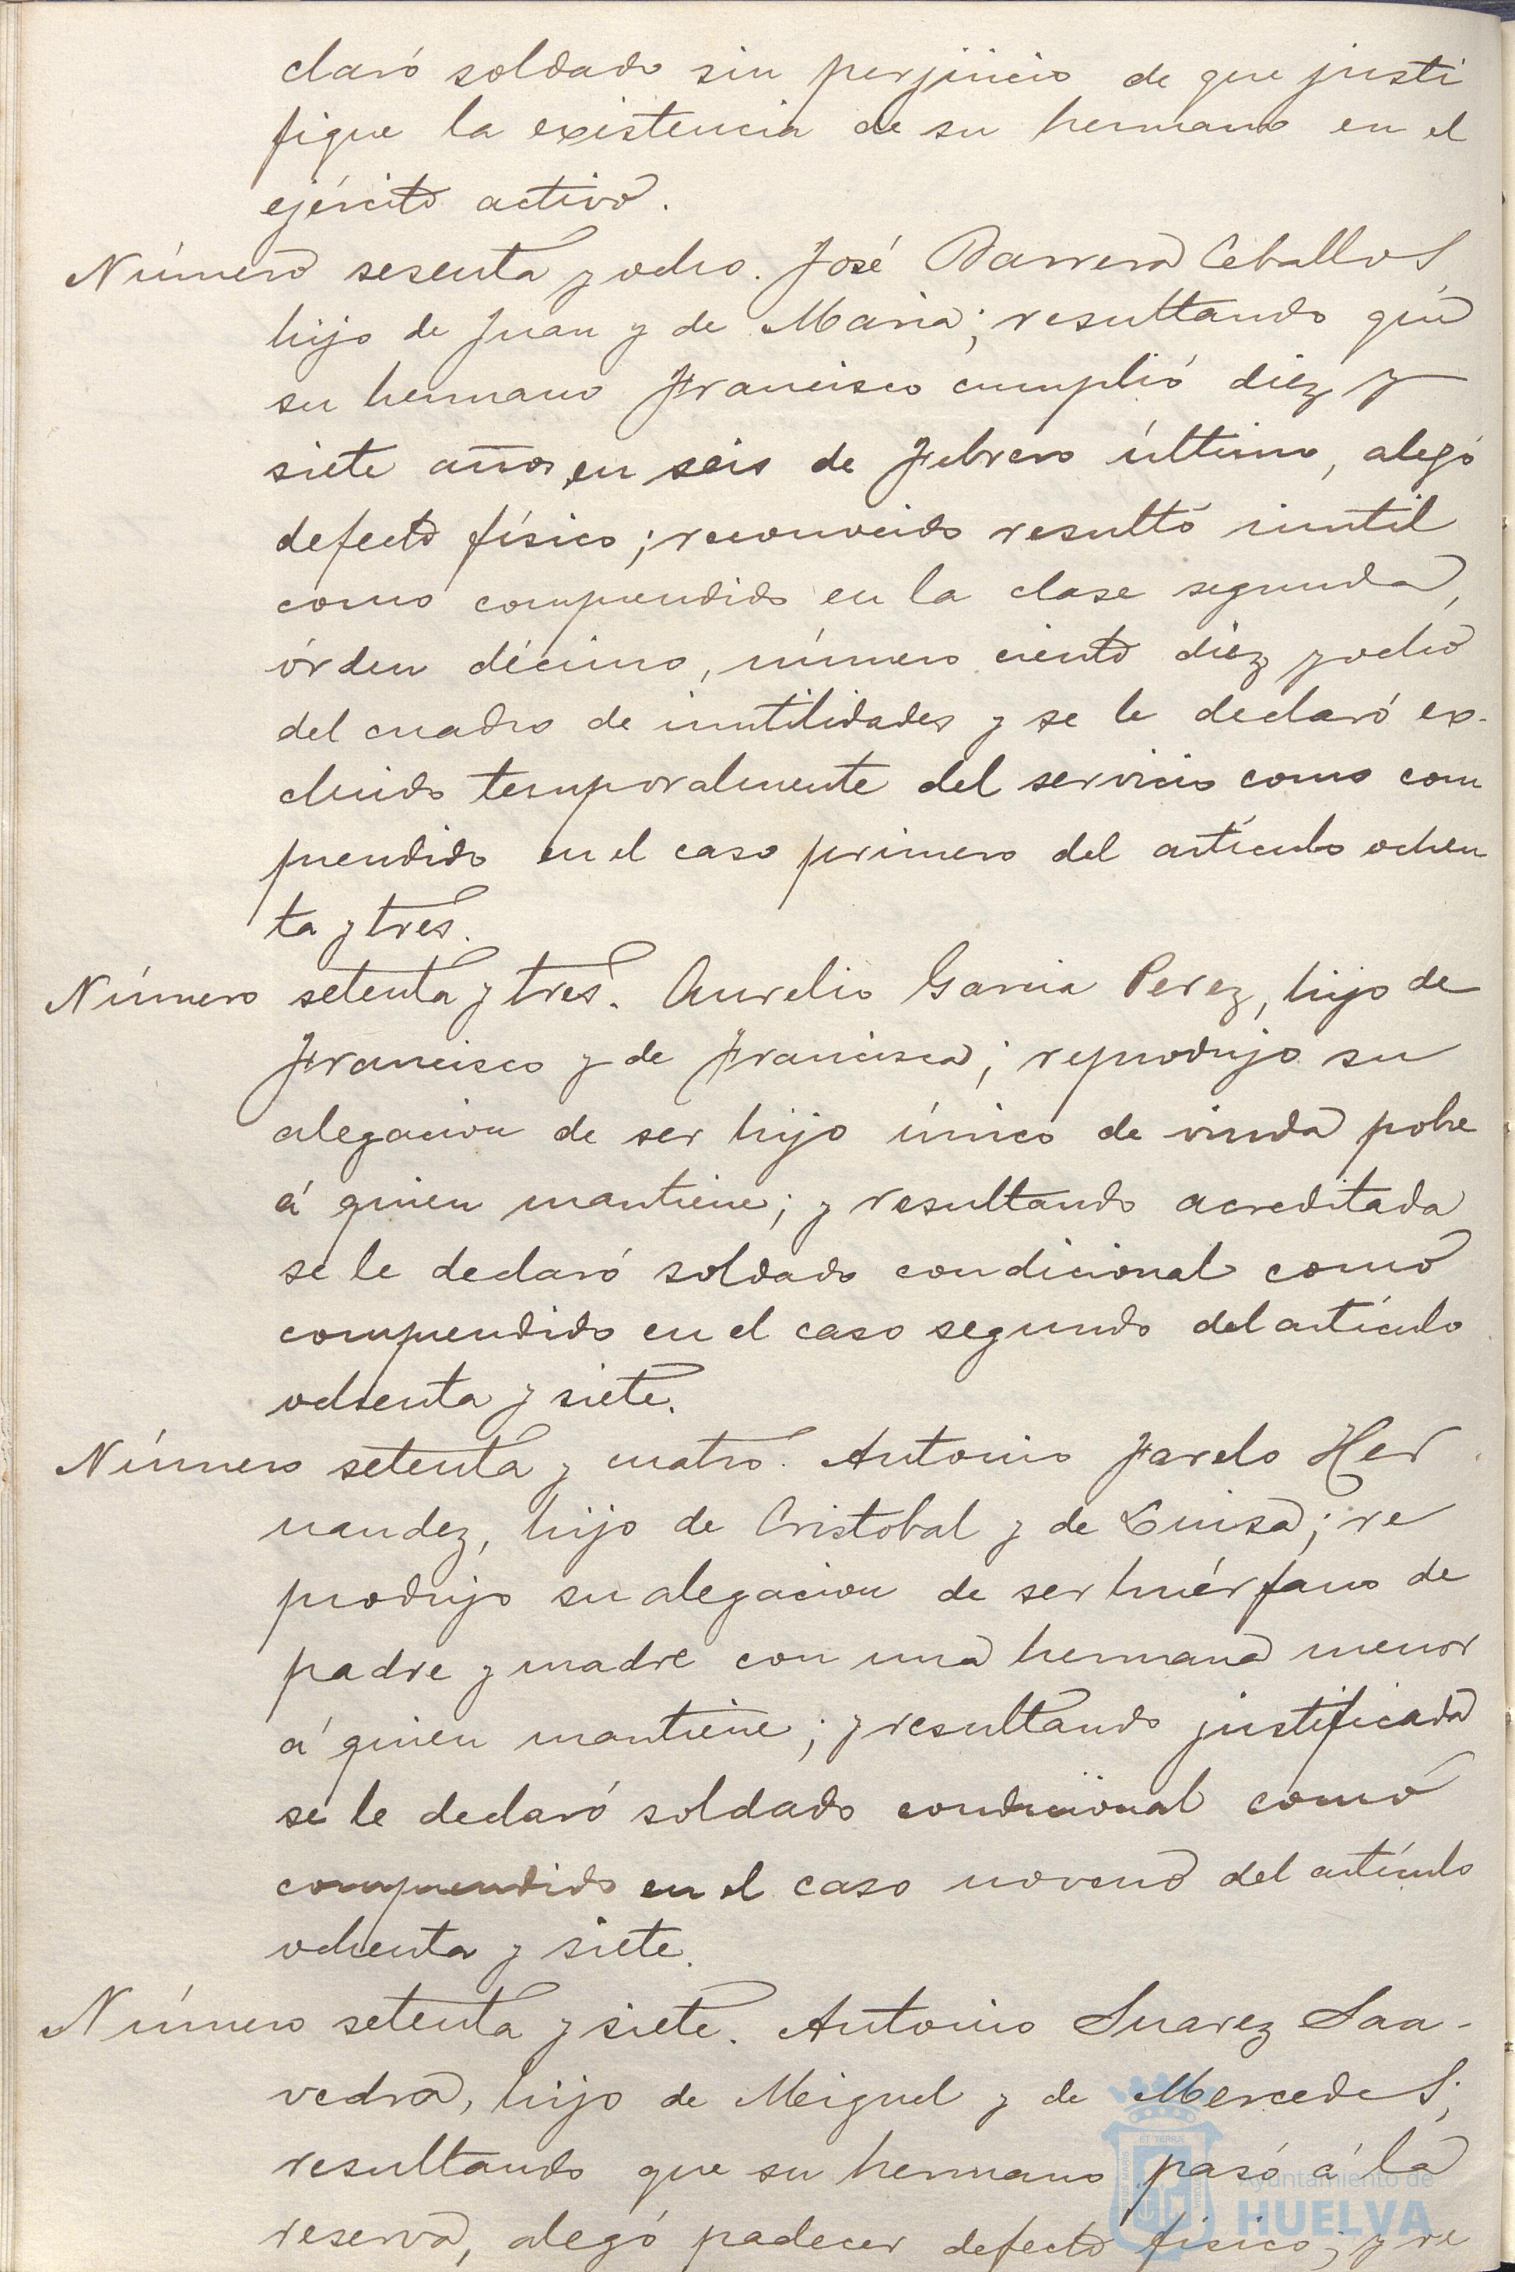 claró soldado sin perjuicio de que justi
fique la existencia de su hermano en el
ejército activo.
Número sesenta y ocho. José Barrera Ceballos
hijo de Juan y de Maria; resultando que
su hermano Francisco cumplió diez y
siete años en seis de Febrero último, alegó
defecto físico; reconocido resultó inutil
como comprendido en la clase segunda,
órden décimo, número ciento diez y ocho
del cuadro de inutilidades y se le declaró ex-
cluido temporalmente del servicio como com
prendido en el caso primero del artículo ochen
ta y tres.
Número setenta y tres. Aurelio Garcia Perez, hijo de
Francisco y de Francisca; reprodujo su
alegacion de ser hijo único de viuda pobre
á quien mantiene; y resultando acreditada
se le declaró soldado condicional como
comprendido en el caso segundo del artículo
ochenta y siete.
Número setenta y cuatro. Antonio Farelo Her
nandez, hijo de Cristobal y de Luisa; re
produjo su alegacion de ser huérfano de
padre y madre con una hermana menor
á quien mantiene; y resultando justificada
se le declaró soldado condicional como
comprendido en el caso noveno del artículo
ochenta y siete.
Número setenta y siete. Antonio Suarez Saa-
vedra, hijo de Miguel y de Mercedes;
resultando que su hermano pasó á la
reserva, alegó padecer defecto físico; y re
Ayuntamiento de
HUELVA